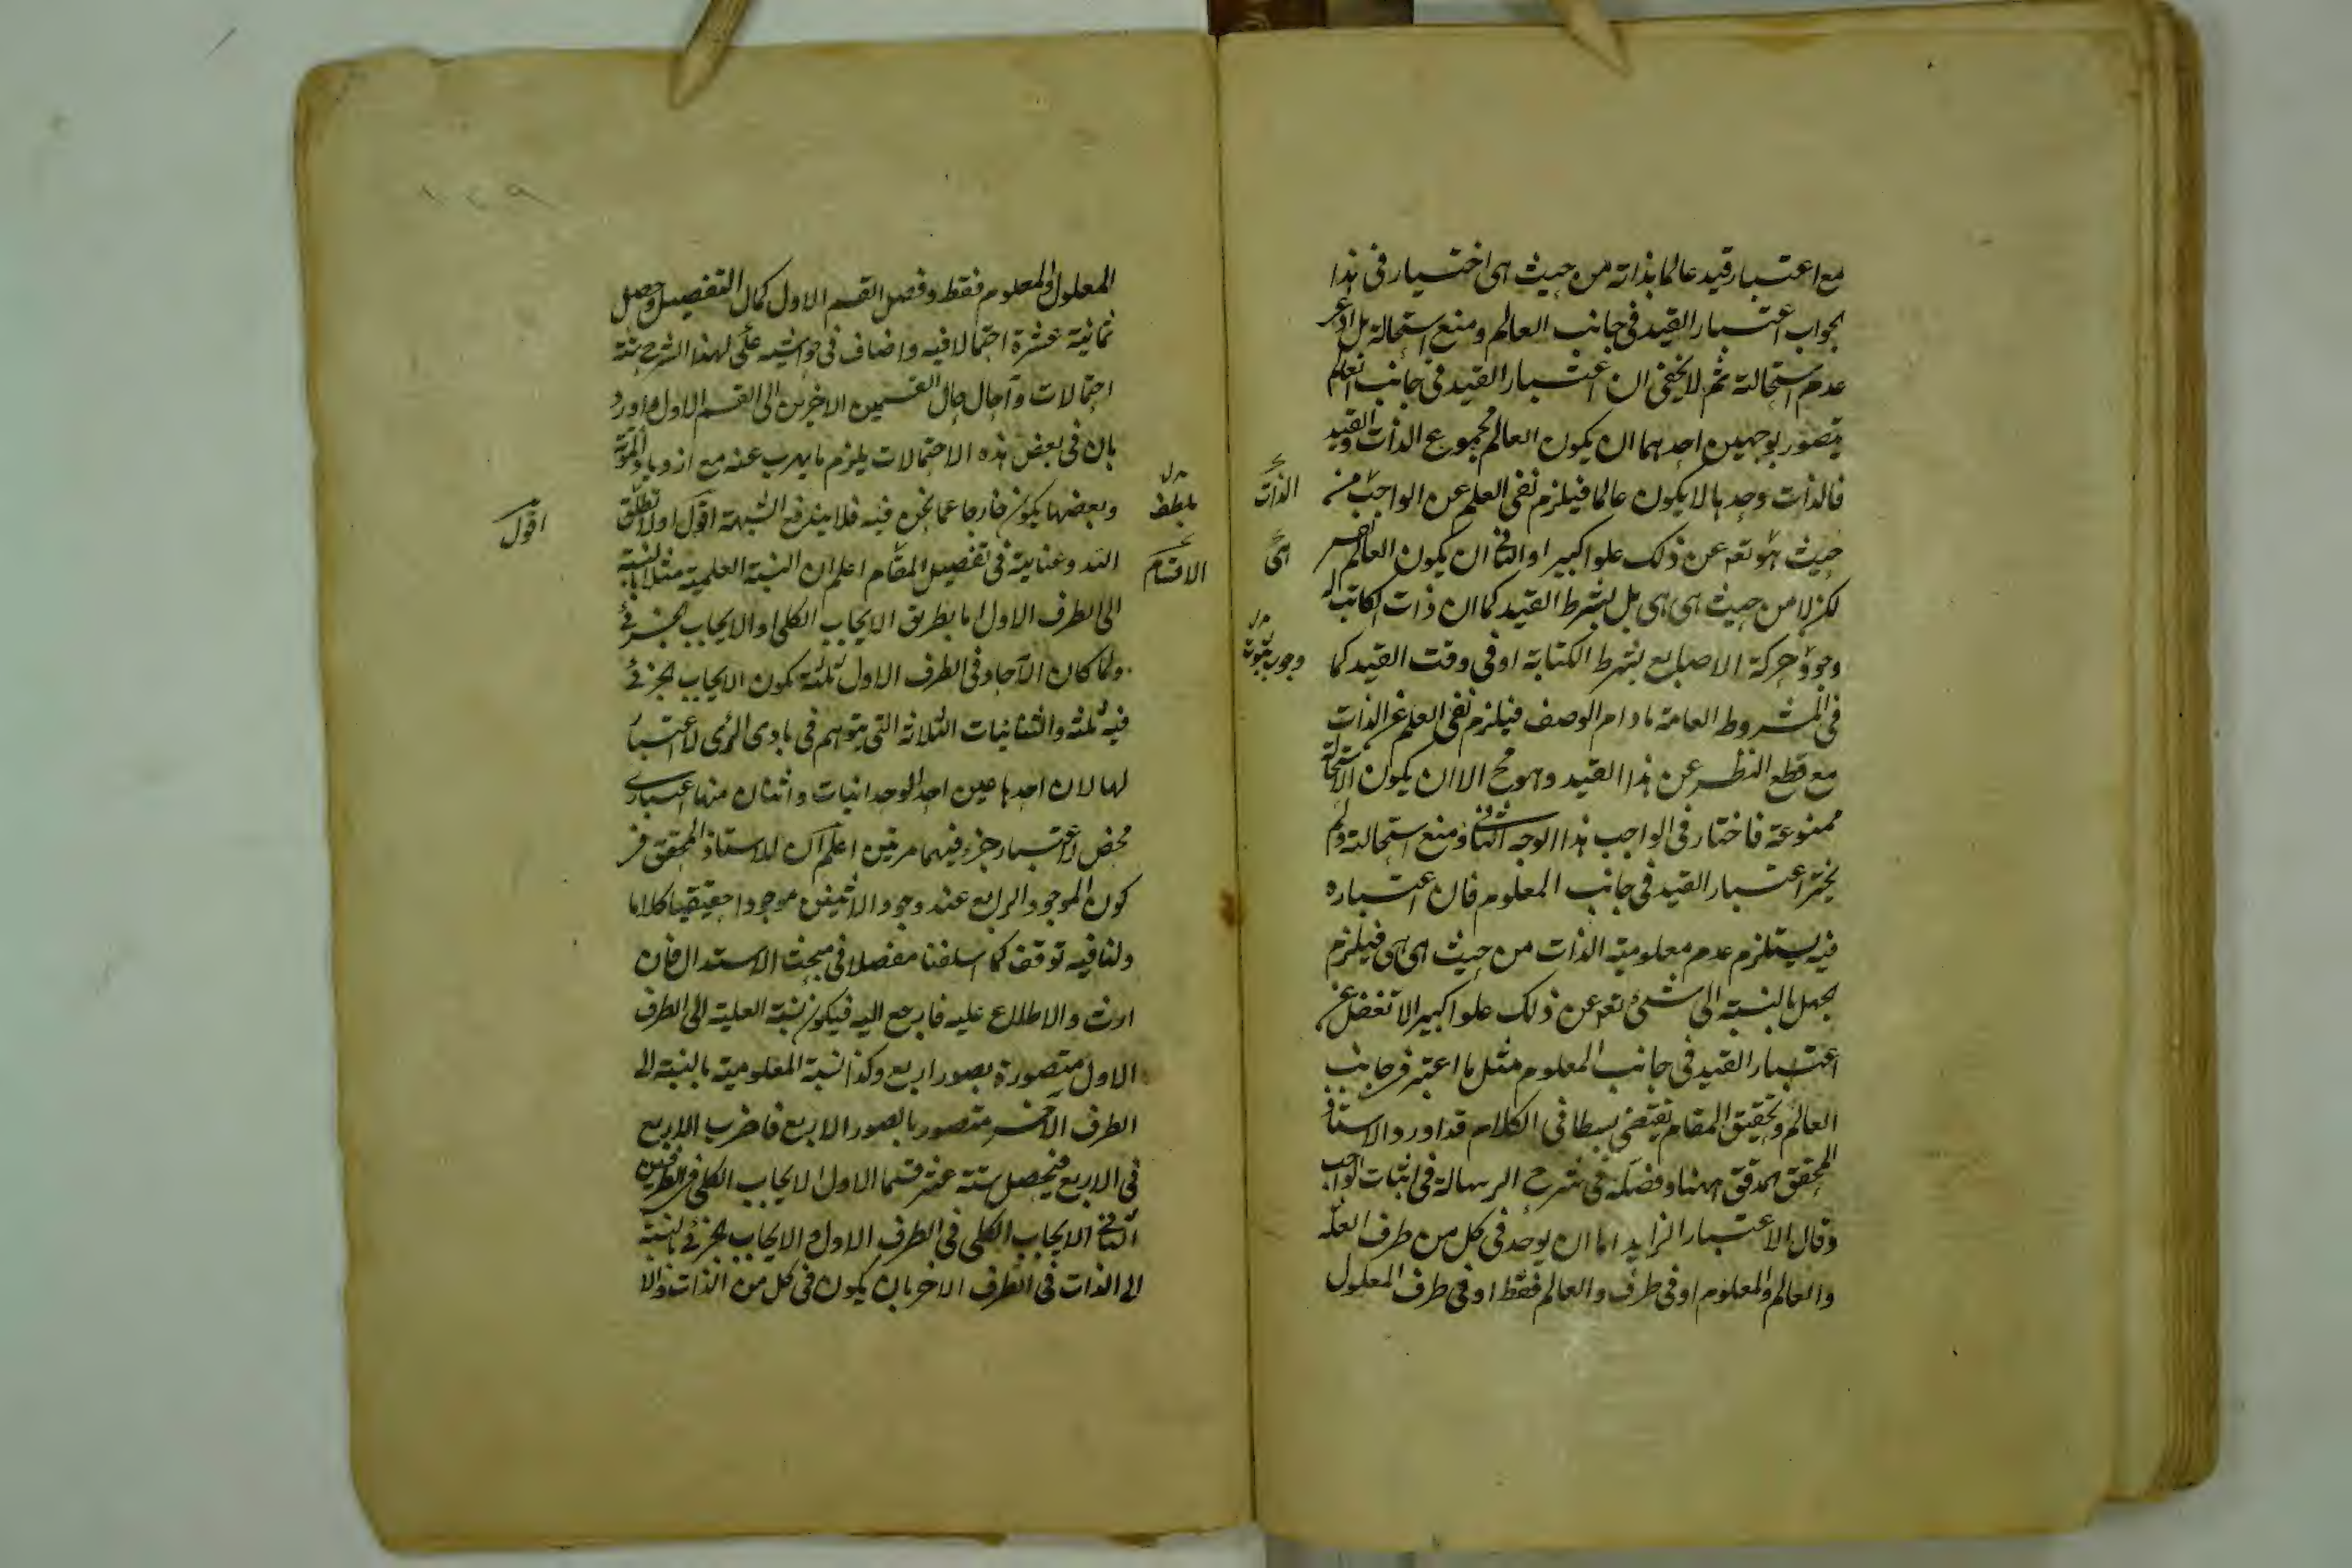 مع اعتبار قيد عالما بذاته من حيث هى اختيار فى هذا
الجواب اعتبار القيد فى جانب العالم ومنع استحالة بل ادعى
عدم استحالته ثم لا يخفى ان اعتبار القيد فى جانب العالم
يتصور بوجهين احدهما ان يكون العالم مجموع الذات والقيد
فالذات وحدها لا يكون عالما فيلزم نفى العلم عن الواجب من
الذات
حيث هو تعه عن ذلك علوا كبيرا والثانى ان يكون العالم
اى
لكن لا من حيث هى هى بل بشرط القيد كما ان ذات الكاتب له
وجود حركة الاصابع بشرط الكتابة او فى وقت القيد كما
وجوب ثبوت
فى المشروط العامة مادام الوصف فيلزم نفى العلم عن الذات
مع قطع النظر عن هذا القيد وهو مح الا ان يكون الاستحالة
ممنوعة فاختار فى الواجب هذا الوجه الثانى ومنع استحالته ولم
يختر اعتبار القيد فى جانب المعلوم فان اعتباره
فيه يستلزم عدم معلومية الذات من حيث هى هى فيلزم
الجهل بالنسبة الى شئ تعه عن ذلك علوا كبيرا لا تغفل عن
اعتبار القيد فى جانب المعلوم مثل ما اعتبر فى جانب
العالم وتحقيق المقام يقتضى بسطا فى الكلام قد اورد الاستاذ
المحقق المدقق ههنا وفصله فى شرح الرسالة فى اثبات الواجب
وقال الاعتبار الزايد اما ان يوجد فى كل من طرف العلة
والعالم والمعلوم او فى طرف والعالم فقط او فى طرف المعلول
المعلول والمعلوم فقط وفصل القسم الاول كمال التفصيل وحصل
ثمانية عشرة احتمالا فيه واضاف فى حواشيه على هذا الشرح ستة
احتمالات وآحال حال القسمين الاخرين الى القسم الاول واورد
بان فى بعض هذه الاحتمالات يلزم ما يهرب عنه مع ازدياد المؤنة
وبعضها يكون خارجا عما نحن فيه فلا يندفع الشبهة اقول اولا
اقول
الله وعناية فى تفصيل المقام اعلم ان النسبة العلمية مثلا بالنسبة
الاقسام
الى الطرف الاول اما بطريق الايجاب الكلى او الايجاب الجزئى
ولما كان الآحاد فى الطرف الاول ثلثة يكون الايجاب الجزئى
فيه ثلثة والثنائيات الثلاثة التى يتوهم فى بادى الرئى لا اعتبار
لها لان احدها عين احد الوحدانيات واثنان منها اعتبارى
محض لاعتبار جزء فيهما مرتين اعلم ان للاستاذ المحقق فى
كون الموجود الرابع عند وجود الاثنين موجودا حقيقيا كلاما
ولنا فيه توقف كما اسلفنا مفصلا فى مبحث الاستدلال فان
اردت والاطلاع عليه فارجع اليه فيكون نسبة العلية الى الطرف
الاول متصورة بصور اربع وكذا نسبة المعلومية بالنسبة الى
الطرف الآخر متصور بالصور الاربع فاضرب الاربع
فى الاربع فيحصل ستة عشر قسما الاول الايجاب الكلى فى الطرفين
الثانى الايجاب الكلى فى الطرف الاول والايجاب الجزئى بالنسبة
الى الذات فى الطرف الاخر بان يكون فى كل من الذات والا